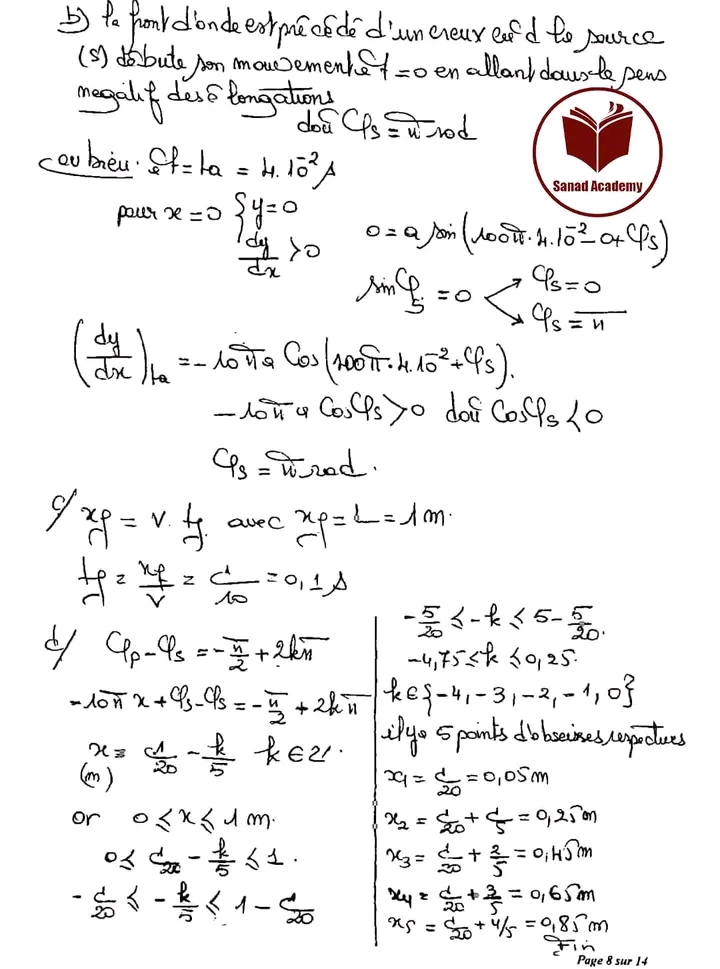 b) le front d'onde est précédé d'un creux la source
(s) débute son mouvement à t=0 en allant dans le sens
négatif des élongations
d'où φs = π rad
Sanad Academy
ou bien. à t=ta = 4.10⁻² s
pour x=0 { y=0
dy/dx > 0
0 = a sin(100π.4.10⁻² - 0 + φs)
sin φs = 0 → φs = 0
→ φs = π
(dy/dx)ta = -10π a Cos(100π.4.10⁻² + φs).
-10π a Cosφs > 0 d'où Cosφs < 0
φs = π rad.
c/ xf = v. tf avec xf = L = 1 m.
tf = xf/v = 1/10 = 0,1 s
d/ φp - φs = -π/2 + 2kπ
-10π x + φs - φs = -π/2 + 2kπ
x = 1/20 - k/5 k ∈ ℤ.
(m)
or 0 ≤ x ≤ 1 m.
0 ≤ 1/20 - k/5 ≤ 1.
-1/20 ≤ -k/5 ≤ 1 - 1/20
-5/20 ≤ -k ≤ 5 - 5/20.
-4,75 ≤ k ≤ 0,25.
k ∈ {-4, -3, -2, -1, 0}
il y a 5 points d'abscisses respectives
x1 = 1/20 = 0,05 m
x2 = 1/20 + 1/5 = 0,25 m
x3 = 1/20 + 2/5 = 0,45 m
x4 = 1/20 + 3/5 = 0,65 m
x5 = 1/20 + 4/5 = 0,85 m
Fin
Page 8 sur 14